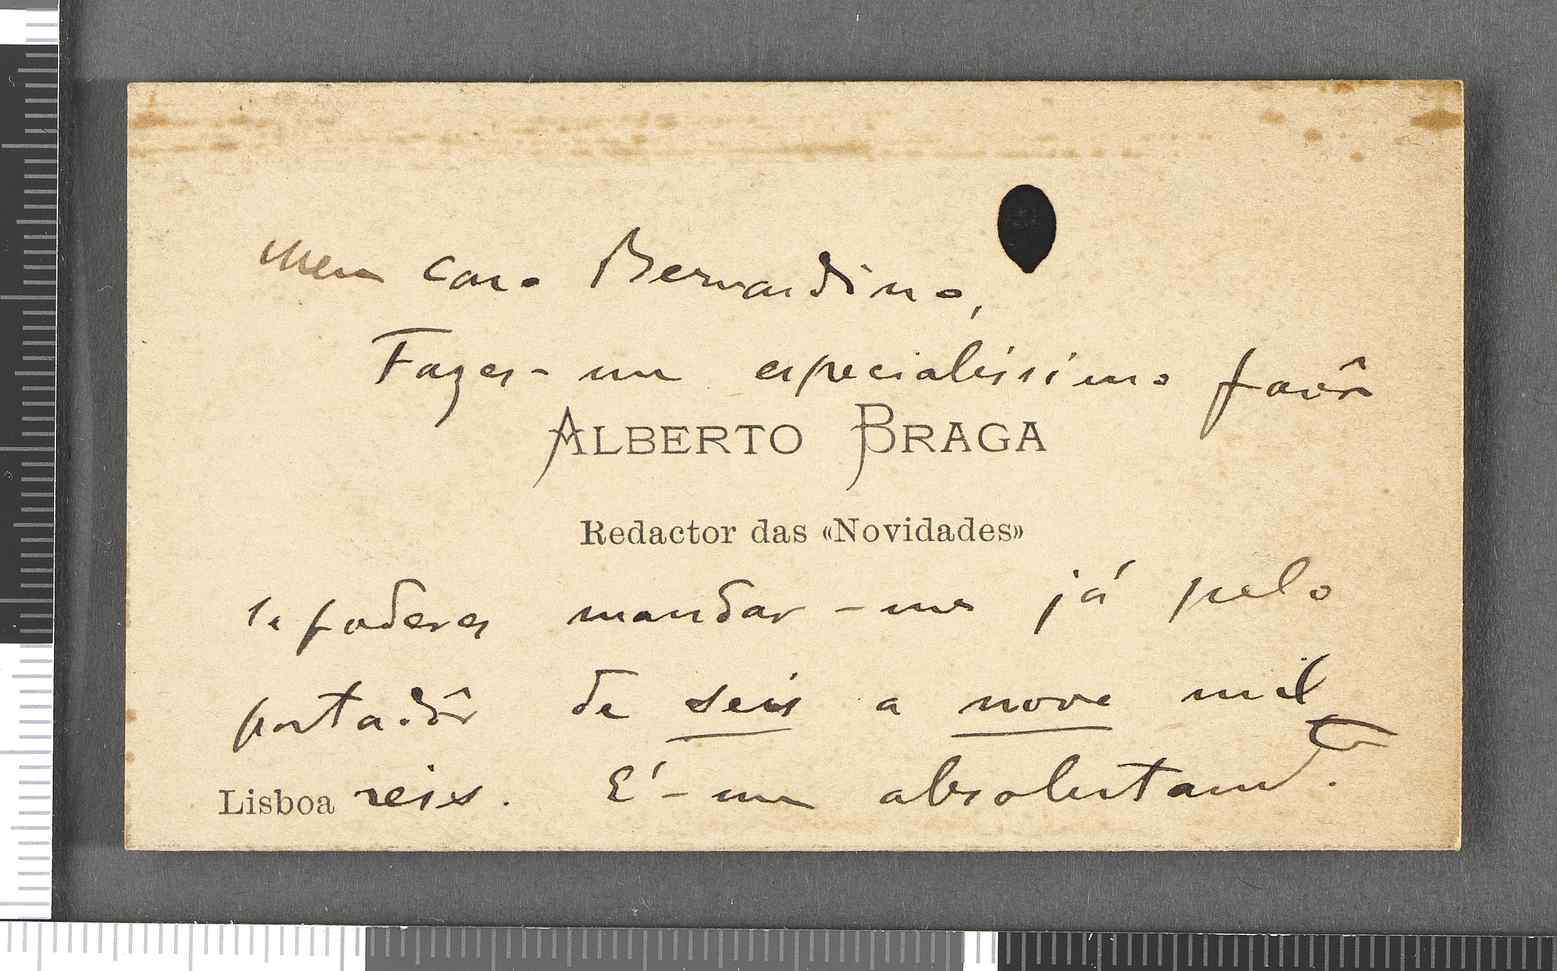 Meu caro Bernardino,
Fazes-me especialissimo favôr
ALBERTO BRAGA
Redactor das «Novidades»
se poderes mandar-me já pelo
portadôr de seis a nove mil
Lisboa reis. É-me absolutamte.